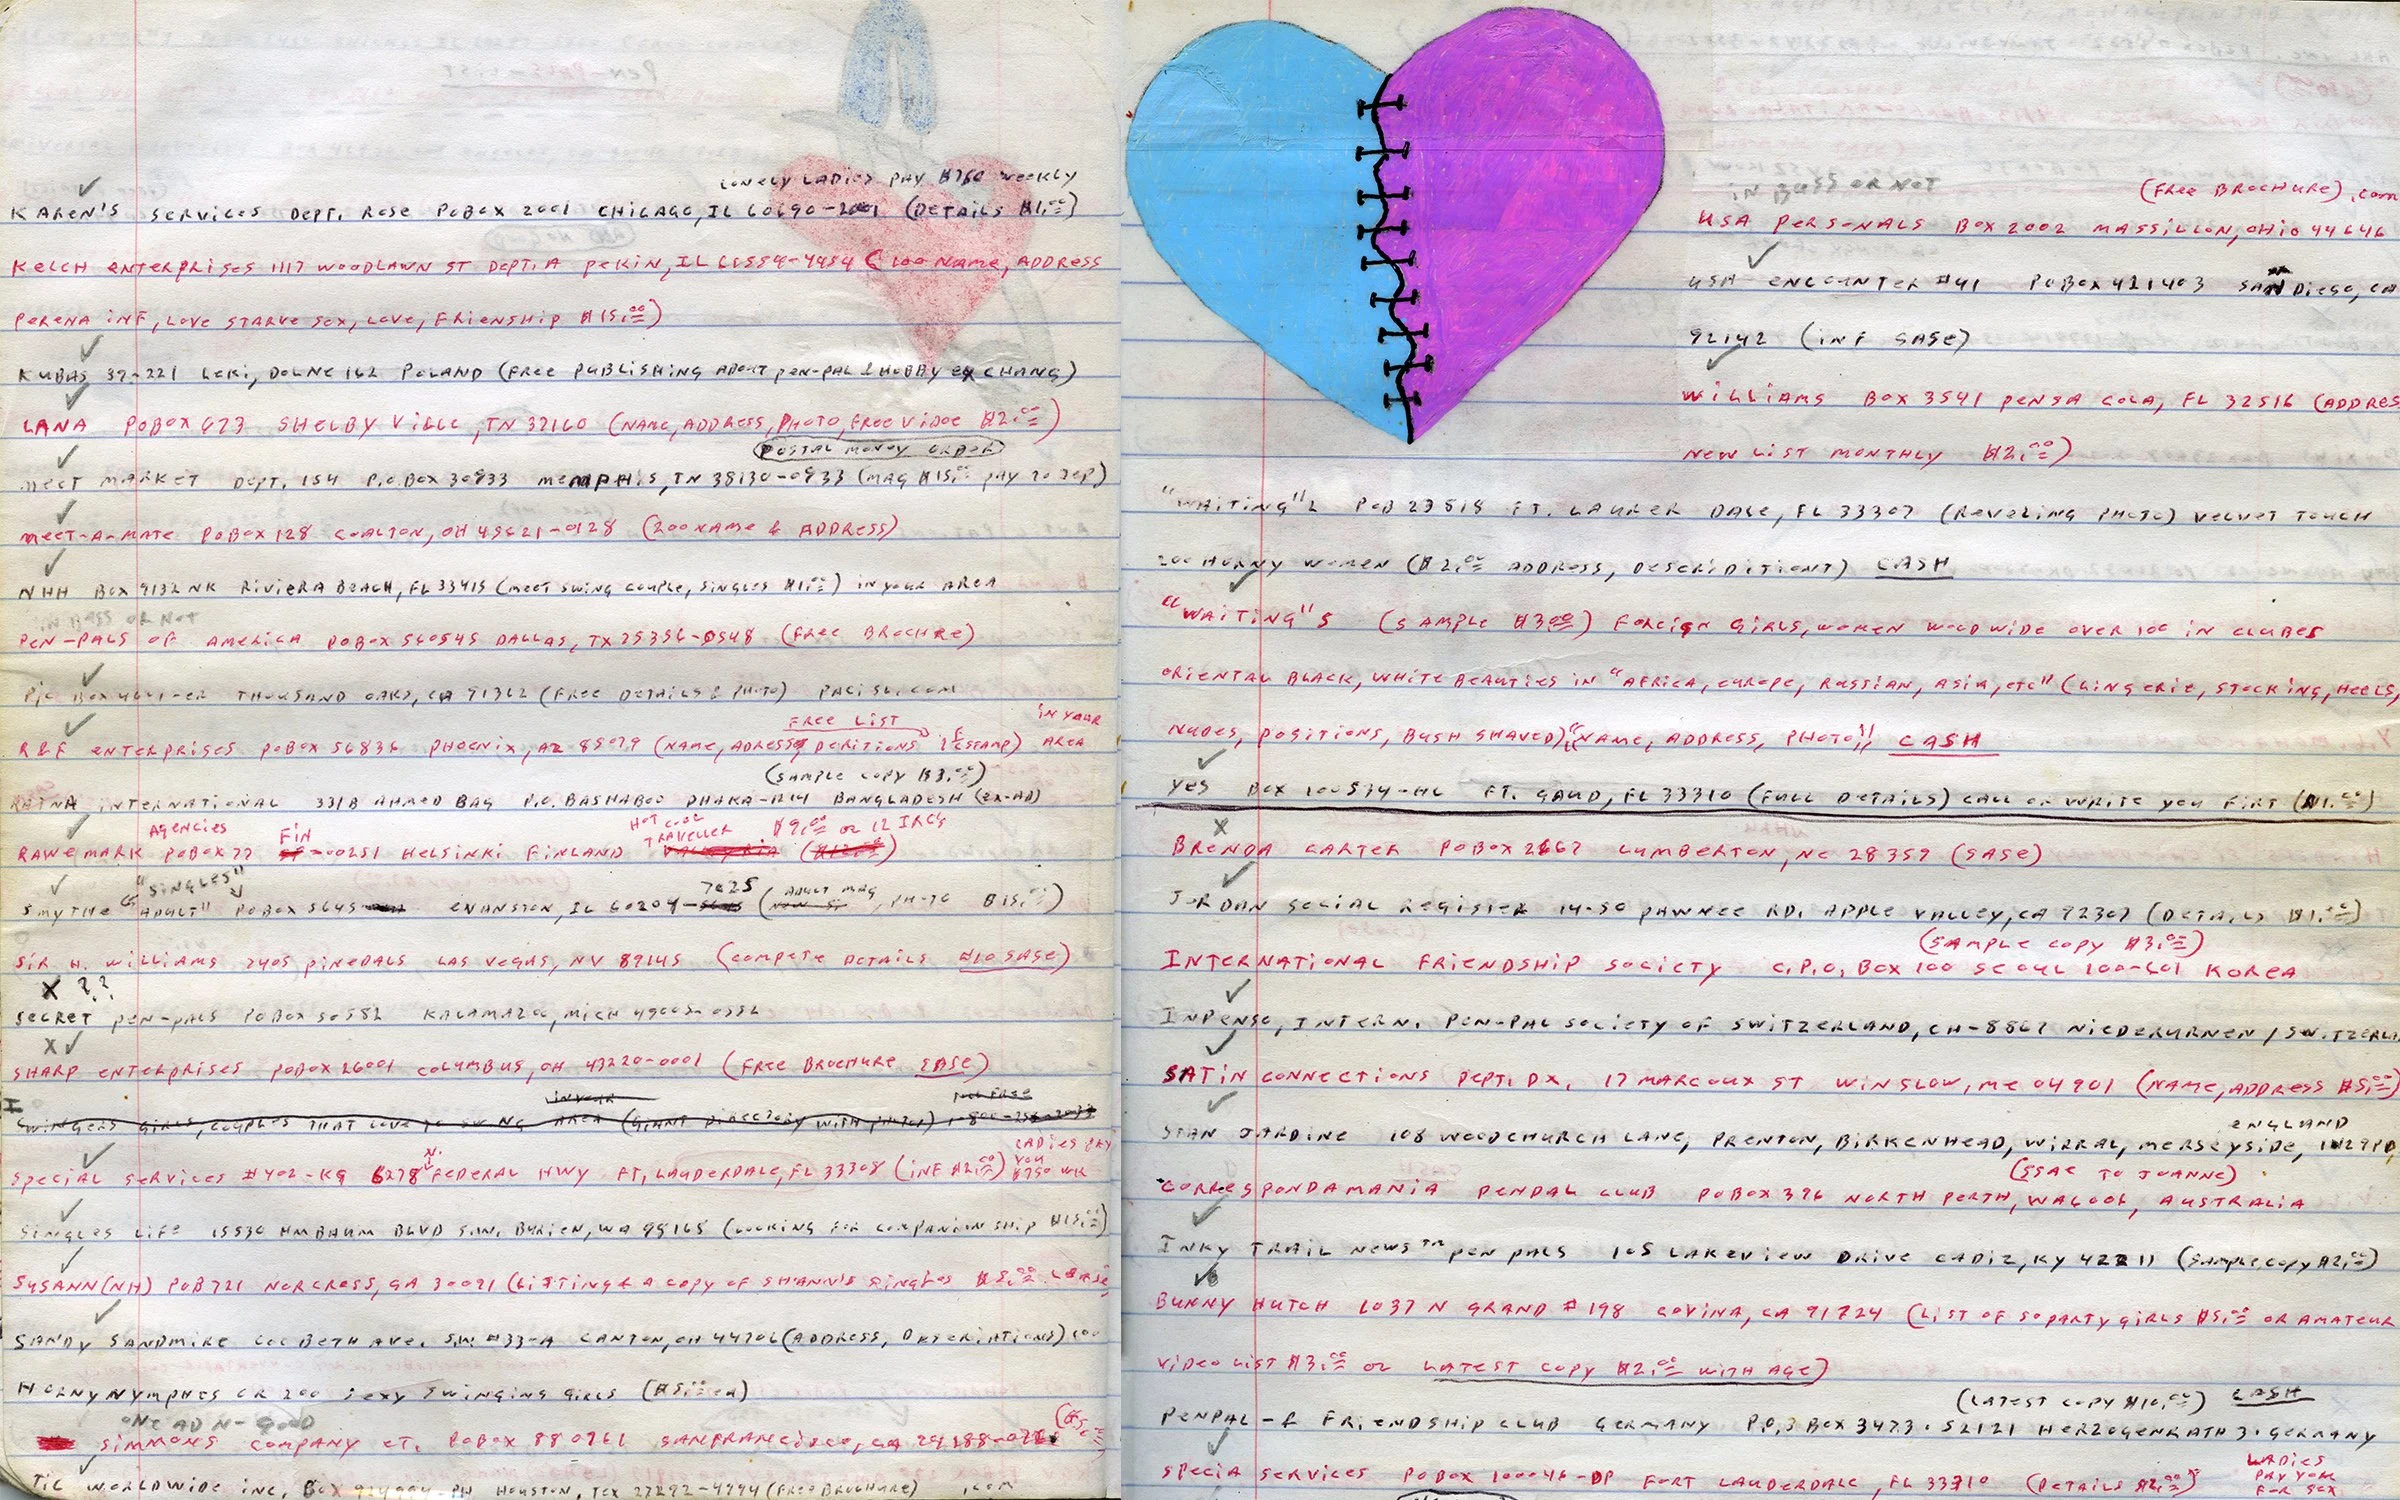 LONELY LADIES PAY $760 WEEKLY
KAREN'S SERVICES DEPT. ROSE POBOX 2001 CHICAGO, IL 60690-2001 (DETAILS $1.00)
KELCH ENTERPRISES 1117 WOODLAWN ST DEPT. A PEKIN, IL 61554-4454 (100 NAME, ADDRESS
PERENA INF, LOVE STARVE SEX, LOVE, FRIENSHIP $15.00)
KUBAS 39-221 LEKI, DOLNE 162 POLAND (FREE PUBLISHING ABOUT PEN-PAL & HOBBY EXCHANG)
LANA POBOX 673 SHELBY VILLE, TN 37160 (NAME, ADDRESS, PHOTO, FREE VIDOE $2.00)
POSTAL MONEY ORDER
MEET MARKET DEPT. 154 P.O. BOX 30933 MEMPHIS, TN 38130-0933 (MAG $15.00 PAY TO JEP)
MEET-A-MATE POBOX 128 COALTON, OH 45621-0128 (200 NAME & ADDRESS)
NHH BOX 9132 NK RIVIERA BEACH, FL 33415 (MEET SWING COUPLE, SINGLES $1.00) IN YOUR AREA
IN BUSS OR NOT
PEN-PALS OF AMERICA POBOX 560545 DALLAS, TX 75356-0548 (FREE BROCHRE)
PIC BOX THOUSAND OAKS, CA 91362 (FREE DETAILS & PHOTO)
FREE LIST IN YOUR
R&F ENTERPRISES POBOX 56836 PHOENIX, AZ 85079 (NAME, ADRESS, AREA
(SAMPLE COPY $3.00)
RATNA INTERNATIONAL 331B AHMED BAG P.O. BASHABOO DHAKA-1214 BANGLADESH (EX-AD)
AGENCIES FIN TRAVELLER $9.00 OR 12 IRCS
RAWEMARK POBOX 77 00251 HELSINKI FINLAND
"SINGLES" 7025 ADULT MAG
SMYTHE "ADULT" POBOX 5645 EVANSTON, IL 60204- , PHOTO $15.00)
SIR H. WILLIAMS 2405 PINEDALS LAS VEGAS, NV 89145 (COMPETE DETAILS #10 SASE)
X ??
SECRET PEN-PALS POBOX 50582 KALAMAZOO, MICH 49005-0582
SHARP ENTERPRISES POBOX 26001 COLUMBUS, OH 43220-0001 (FREE BROCHURE SASE)
IN YOUR
SWINGERS GIRLS, COUPLES THAT LOVE TO SWING AREA (GIANT DIRECTORY WITH PHOTO)
LADIES PAY
N. YOU
SPECIAL SERVICES #402-KG 6278 FEDERAL HWY FT, LAUDERDALE, FL 33308 (INF $2.00) $750 WK
SINGLES LIFE 15530 AMBAUM BLVD S.W. BURIEN, WA 98168 (LOOKING FOR COMPANIONSHIP $15.00)
SUSANN (NH) POB 721 NORCROSS, GA 30091 (LISTING & A COPY OF SINGLES
SANDY SANDMIRE BETH AVE. S.W. #33-A CANTON, OH 44706 (ADDRESS,
HORNY NYMPHES OR 200 SEXY SWINGING GIRLS ($5.00 ea)
ONE AD N- GOOD
SIMMONS COMPANY CT. POBOX 880761 SANFRANCISCO, CA
TIC WORLDWIDE INC, BOX HOUSTON, TEX 77292-4794 (FREE BROCHURE) .COM
IN BUSS OR NOT
(FREE BROCHURE) .COM
USA PERSONALS BOX 2002 MASSILLON, OHIO 44646
USA ENCOUNTER #41 POBOX 421403 SAN DIEGO, CA
92142 (INF SASE)
WILLIAMS BOX 3541 PENSA COLA, FL 32516 (ADDRES
NEW LIST MONTHLY $2.00)
"WAITING" 2 POB 23818 FT. LAUDER DALE, FL 33307 (REVELING PHOTO) VELVET TOUCH
200 HORNY WOMEN ($2.00 ADDRESS, DESCRIDITIONT) CASH
"WAITING" 5 (SAMPLE $3.00) FOREIGN GIRLS, WOMEN WOOD WIDE OVER 100 IN CLUBES
ORIENTAL BLACK, WHITE BEAUTIES IN "AFRICA, EUROPE, RUSSIAN, ASIA, ETC" (LINGERIE, STOCKING, HEELS,
NUDES, POSITIONS, BUSH SHAVED) "NAME, ADDRESS, PHOTO," CASH
YES BOX 100534-HL FT. GAUD, FL 33310 (FULL DETAILS) CALL OR WRITE YOU FIRT ($1.00)
X
BRENDA CARTER POBOX 2667 LUMBERTON, NC 28359 (SASE)
JORDAN SOCIAL REGISTER 14-50 PAWNEE RD. APPLE VALLEY, CA 92307 (DETAILS $1.00)
(SAMPLE COPY $3.00)
INTERNATIONAL FRIENDSHIP SOCIETY C.P.O. BOX 100 SEOUL 100-601 KOREA
INPENSO, INTERN. PEN-PAL SOCIETY OF SWITZERLAND, CH-8867 NIEDERURNEN / SWITZERLA
SATIN CONNECTIONS DEPT. DX, 17 MARCOUX ST WINSLOW, ME 04901 (NAME, ADDRESS $5.00)
ENGLAND
STAN JARDINE 108 WOODCHURCH LANE, PRENTON, BIRKENHEAD, WIRRAL, MERSEYSIDE,
(SSAE TO JOANNE)
CORRESPONDAMANIA PENPAL CLUB POBOX 376 NORTH PERTH, WA6006, AUSTRALIA
INKY TRAIL NEWS TM PEN PALS 105 LAKEVIEW DRIVE CADIZ, KY 42211 (SAMPLE COPY $2.00)
BUNNY HUTCH 1037 N GRAND #198 COVINA, CA 91724 (LIST OF 50 PARTY GIRLS $5.00 OR AMATEUR
VIDEO LIST $3.00 OR LATEST COPY $2.00 WITH AGE)
(LATEST COPY $10.00) CASH
PENPAL-& FRIENDSHIP CLUB GERMANY P.O. BOX 3473. 52121 HERZOGENRATH 3. GERMANY
LADIES
PAY YOU
SPECIA SERVICES POBOX 100046-DP FORT LAUDERDALE, FL 33310 (DETAILS $2.00) FOR SEX